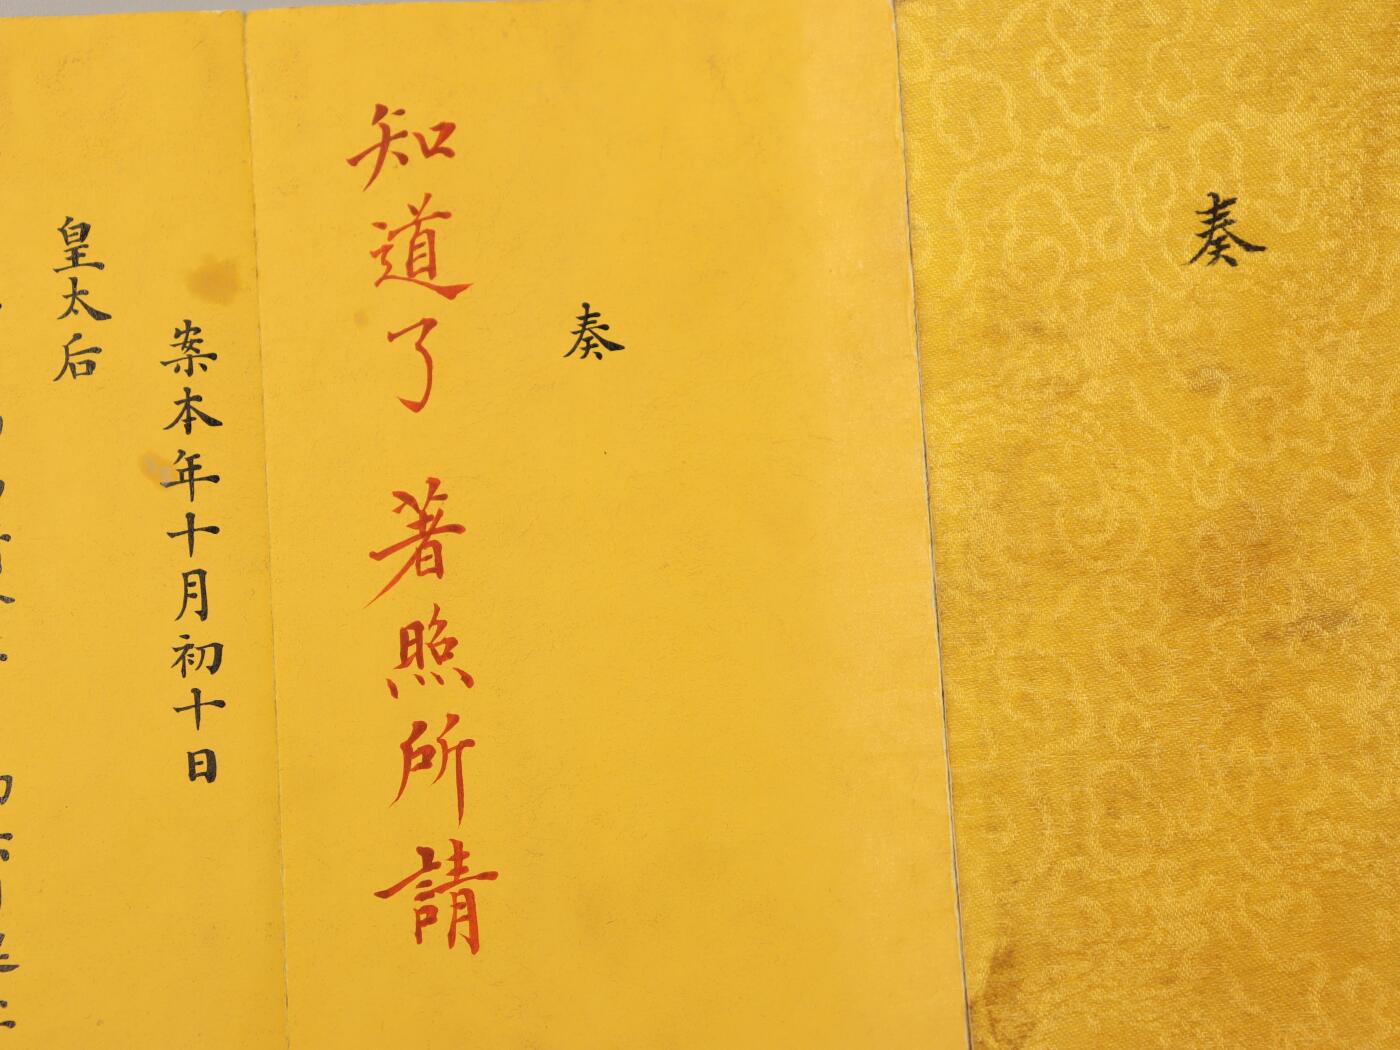 奏
奏
知道了 著照所請
案本年十月初十日
皇太后